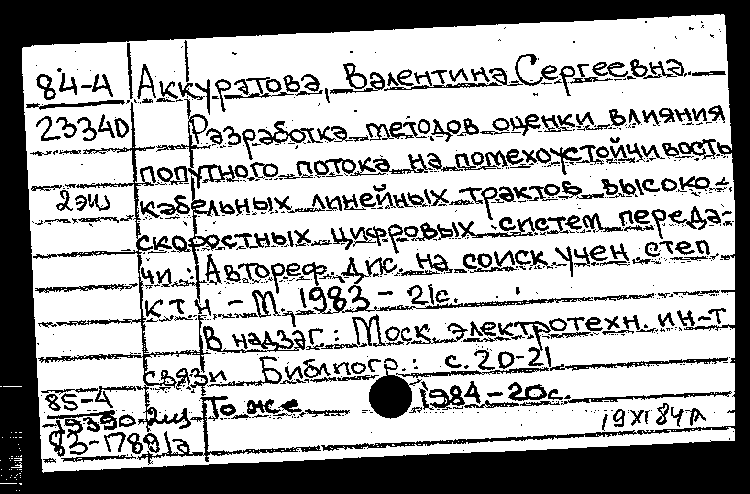 84-4 Аккуратова, Валентина Сергеевна
23340 Разработка методов оценки влияния
попутного потока на помехоустойчивость
2 экз кабельных линейных трактов высоко-
скоростных цифровых систем переда-
чи : Автореф. дис. на соиск учен степ
к т н - М, 1983 - 21с.
В надзаг: Моск электротехн. ин-т
связи Библиогр.: с. 20-21
85-4
19390 2экз То же 1984.-20с.
83-17881а
19 XI 84 л